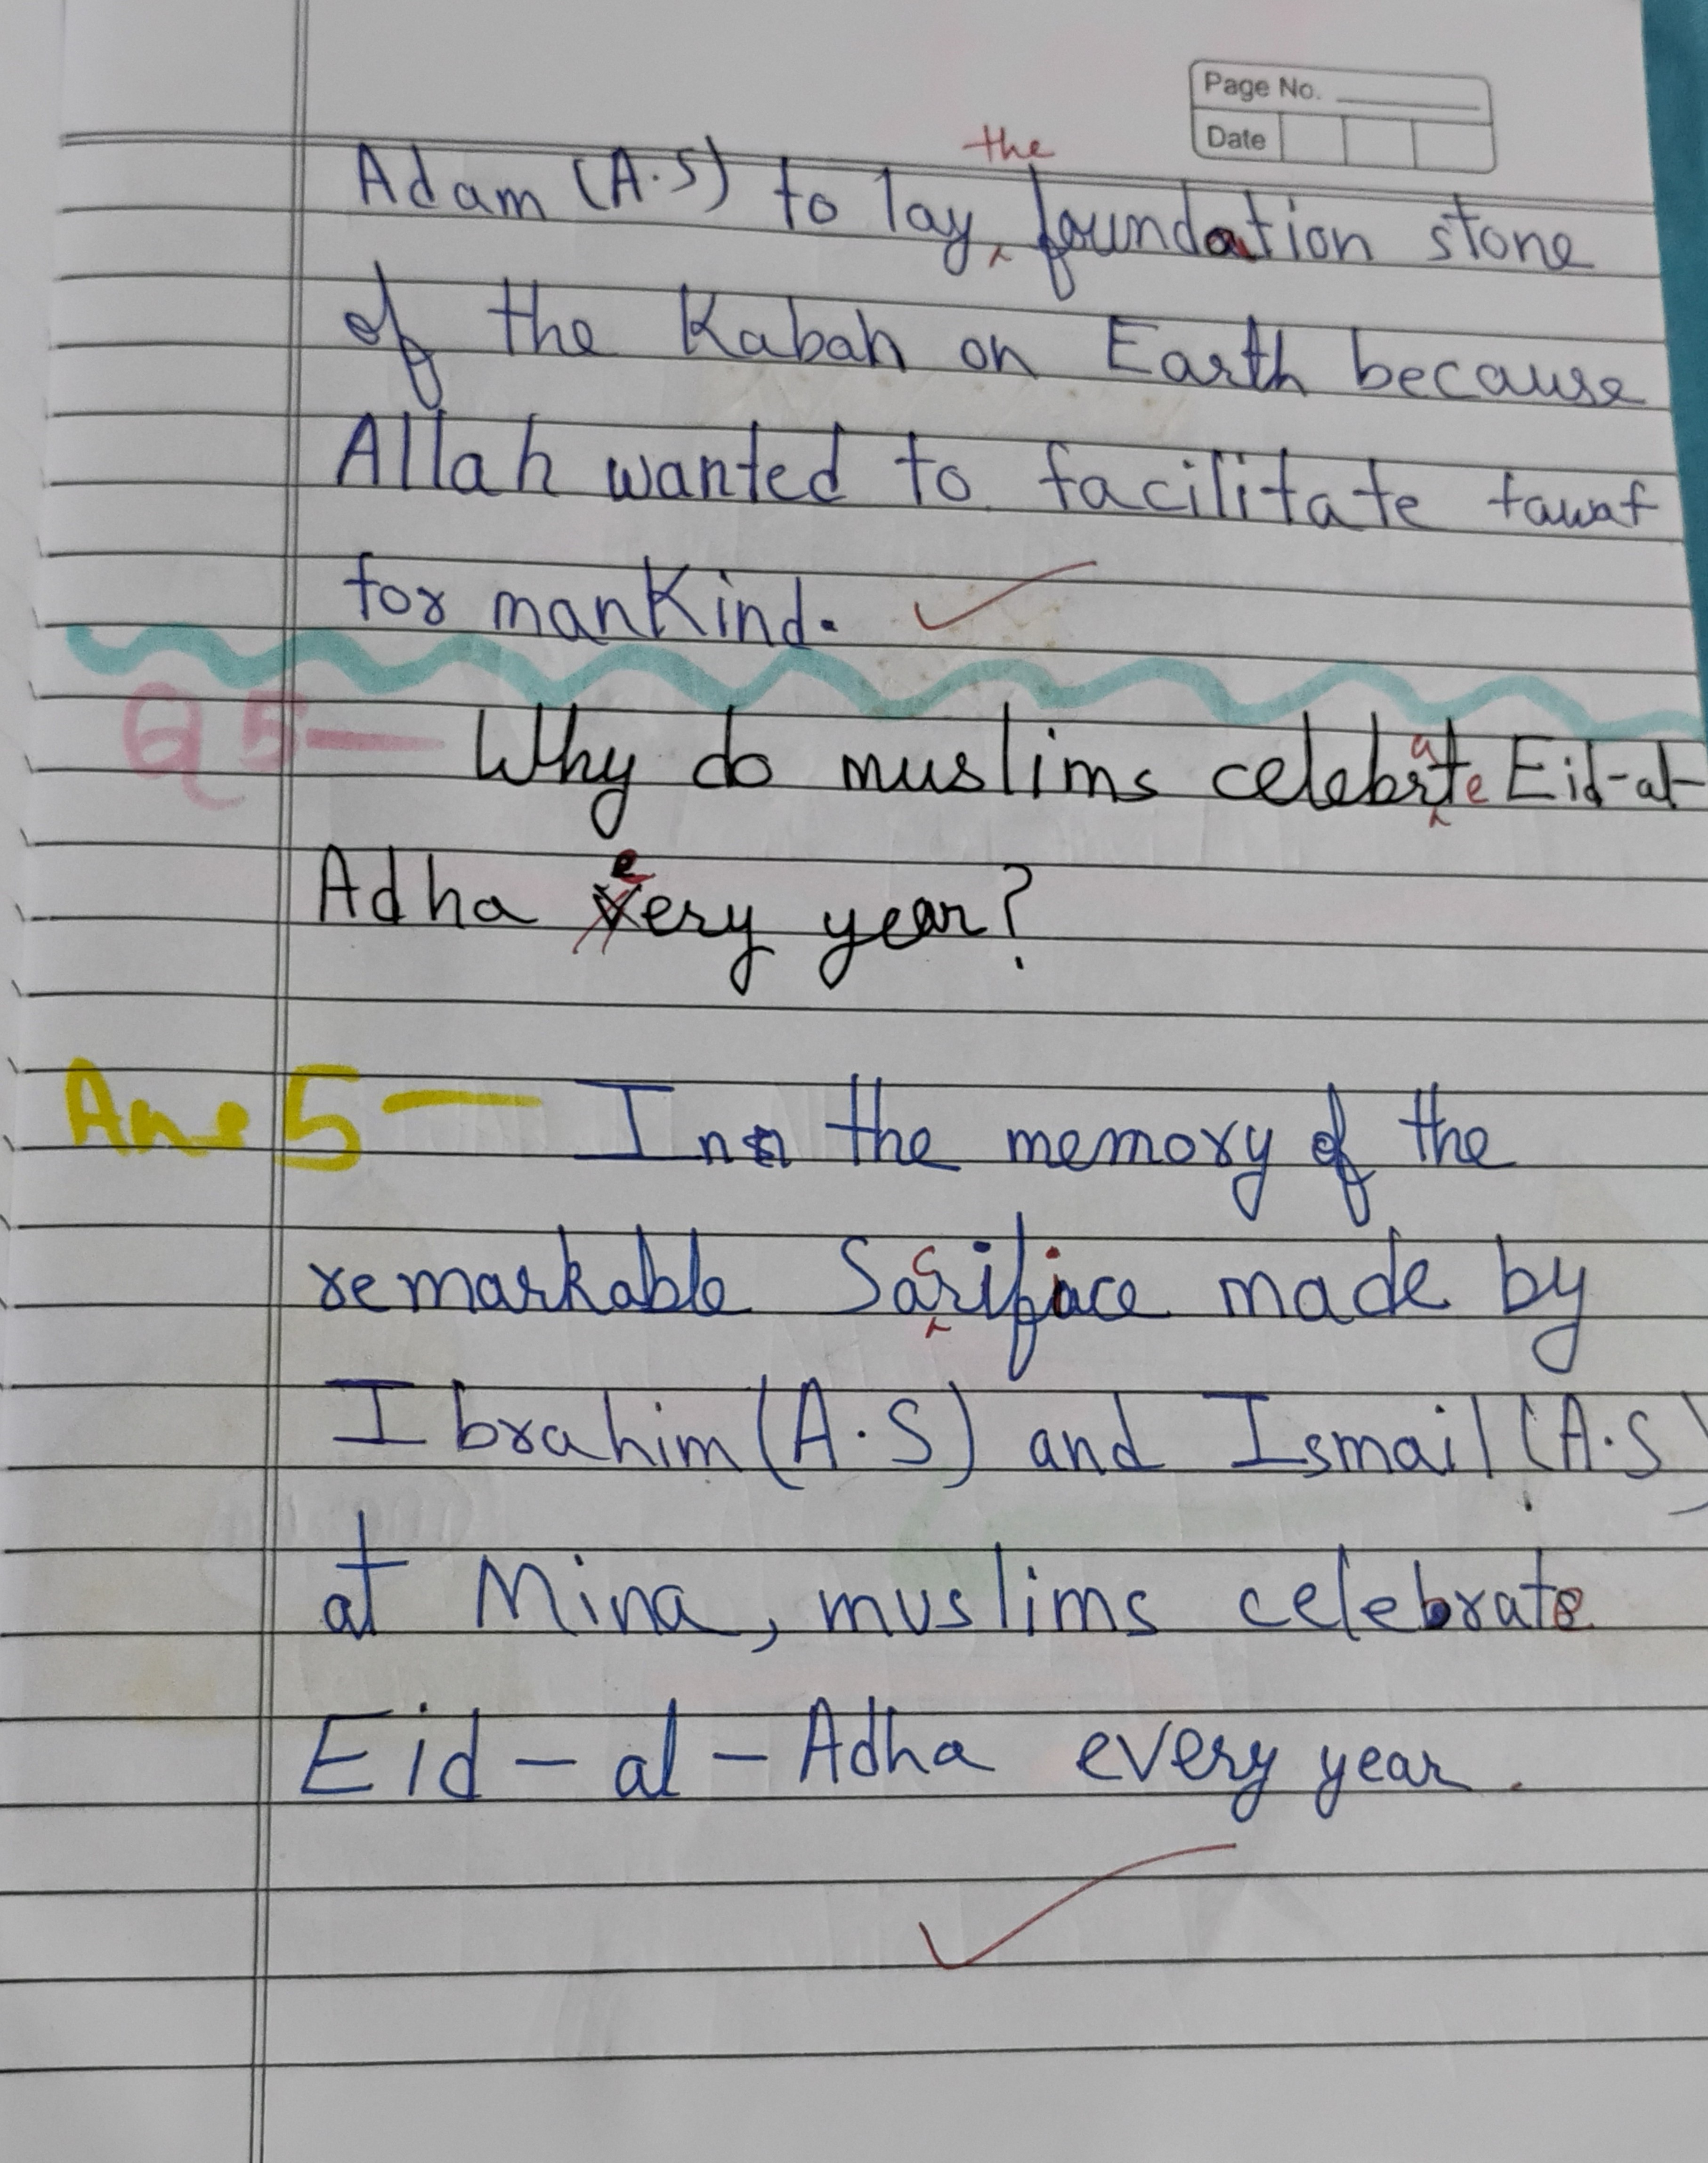 Page No.
Date
the
Adam (A.S) to lay foundation stone
of the Kabah on Earth because
Allah wanted to facilitate tawaf
for manKind.
Q5— Why do muslims celebrate Eid-al-
Adha every year?
Ans 5— In the memory of the
remarkable Sacrifice made by
Ibrahim (A.S) and Ismail (A.S)
at Mina, muslims celebrate
Eid-al-Adha every year.